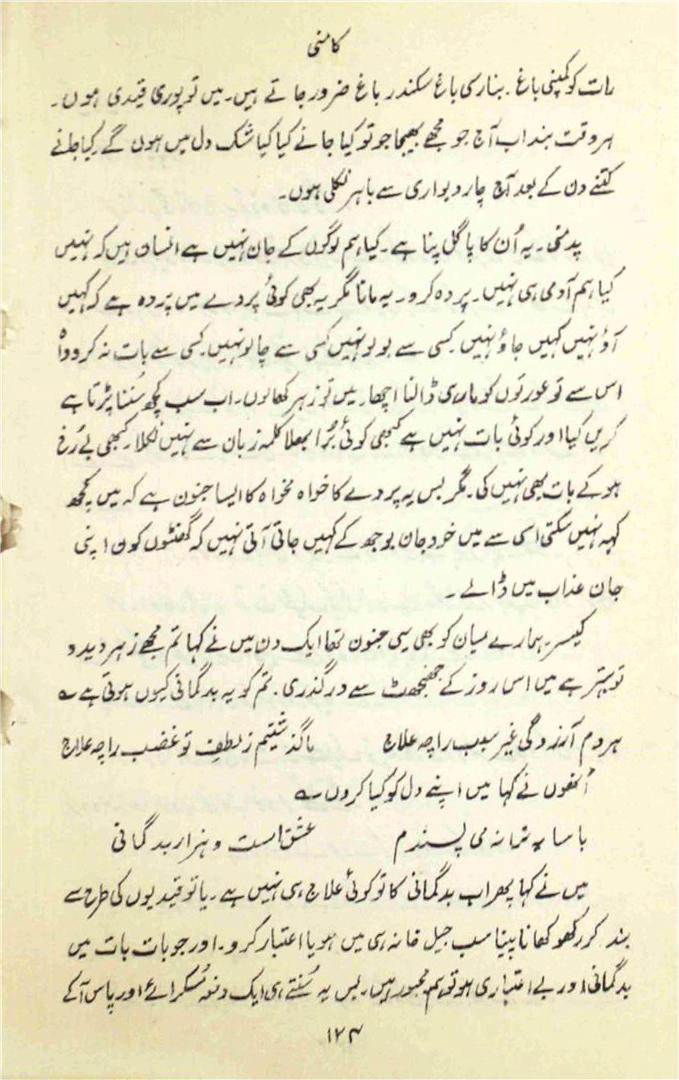 کامنی
رات کو کمپنی باغ۔ بنارسی باغ سکندر باغ ضرور جاتے ہیں۔ میں تو پوری قیدی ہوں۔
ہر وقت بند اب آج جو مجھے بھیجا جو تو کیا جانے کیا کیا شک دل میں ہوں گے کیا جانے
کتنے دن کے بعد آج چار دیواری سے باہر نکلی ہوں۔
پدمنی۔ یہ اُن کا پاگل پنا ہے۔ کیا ہم لوگوں کے جان نہیں ہے انسان ہیں کہ نہیں
کیا ہم آدمی ہی نہیں۔ پردہ کرو۔ یہ مانا مگر یہ بھی کوئی پردے میں پردہ ہے کہ کہیں
آؤ نہیں کہیں جاؤ نہیں کسی سے بولو نہیں کسی سے چالو نہیں۔ کسی سے بات نہ کرو واہ
اس سے تو عورتوں کو مار ہی ڈالنا اچھا۔ میں تو زہر کھالوں۔ اب سب کچھ سُننا پڑتا ہے
کریں کیا اور کوئی بات نہیں ہے کبھی کوئی بُرا بھلا کلمہ زبان سے نہیں نکلا۔ کبھی بے رُخ
ہو کے بات بھی نہیں کی۔ مگر بس یہ پردے کا خواہ نخواہ کا ایسا جنون ہے کہ میں کچھ
کہہ نہیں سکتی اسی سے میں خود جان بوجھ کے کہیں جاتی آتی نہیں کہ گھنٹوں کون اپنی
جان عذاب میں ڈالے۔
کیسر۔ ہمارے میاں کو بھی یہی جنون تھا ایک دن میں نے کہا تم مجھے زہر دیدو
تو بہتر ہے میں اس روز کے جھنجھٹ سے درگذری۔ تم کو یہ بدگمانی کیوں ہوتی ہے ؎
ہر دم آزردگی غیر سبب را چہ علاج ما گذشتیم ز لطفِ تو غضب را چہ علاج
اُنھوں نے کہا میں اپنے دل کو کیا کروں ؎
با سایہ ترا نہ می پسندم عشق است و ہزار بدگمانی
میں نے کہا پھر اب بدگمانی کا تو کوئی علاج ہی نہیں ہے۔ یا تو قیدیوں کی طرح سے
بند کر رکھو کھانا پینا سب جیل خانہ ہی میں ہو یا اعتبار کرو۔ اور جو بات بات میں
بدگمانی اور بے اعتباری ہو تو ہم مجبور ہیں۔ بس یہ سُنتے ہی ایک دفعہ مُسکرائے اور پاس آکے
۱۲۴